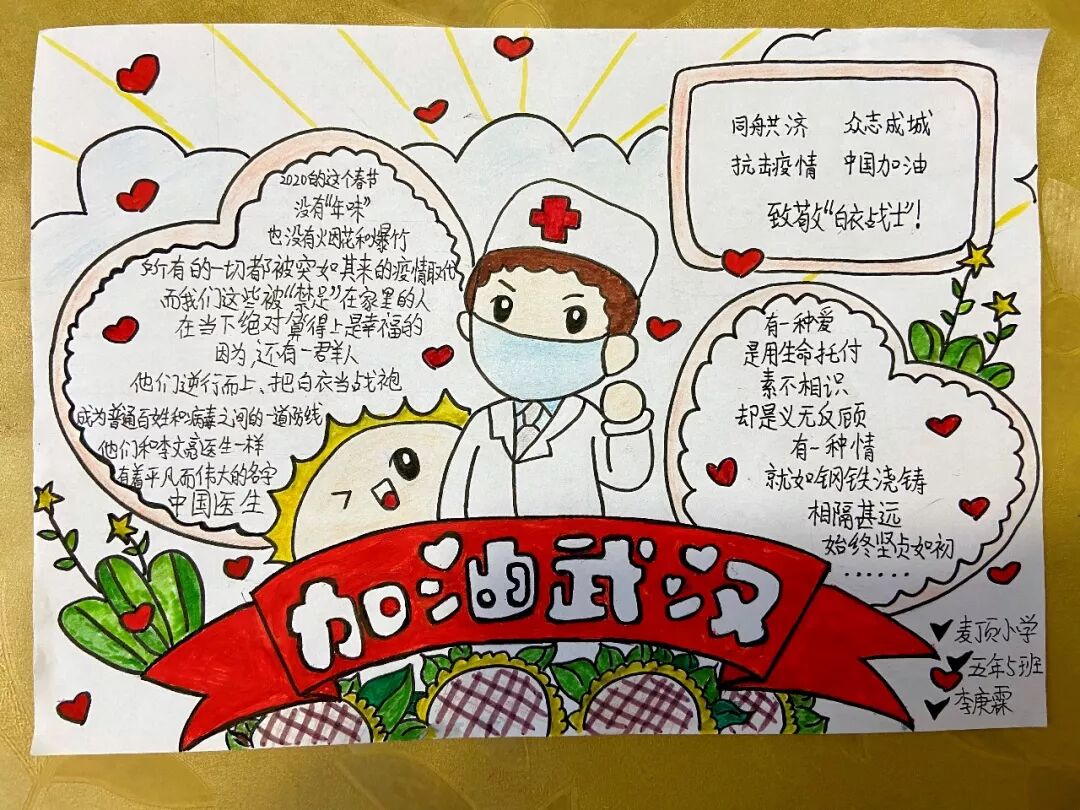 2020的这个春节
没有“年味”
也没有烟花和爆竹
所有的一切都被突如其来的疫情取代
而我们这些被“禁足”在家里的人
在当下绝对算得上是幸福的
因为还有一群人
他们逆行而上、把白衣当战袍
成为普通百姓和病毒之间的一道防线
他们和李文亮医生一样
有着平凡而伟大的名字
中国医生
同舟共济 众志成城
抗击疫情 中国加油
致敬“白衣战士”!
有一种爱
是用生命托付
素不相识
却是义无反顾
有一种情
就如钢铁浇铸
相隔甚远
始终坚贞如初
……
加油武汉
麦顶小学
五年5班
李庚霖